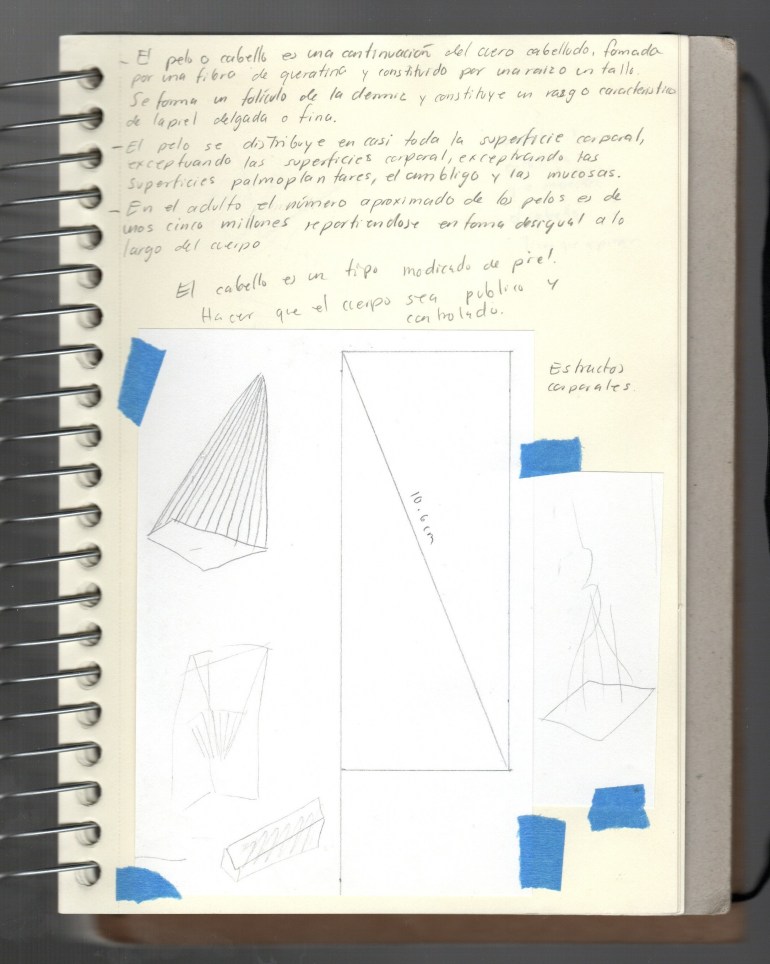 - El pelo o cabello es una continuación del cuero cabelludo, formada
por una fibra de queratina y constituido por una raiz o un tallo.
Se forma un folículo de la dermis y constituye un rasgo caracteristico
de la piel delgada o fina.
- El pelo se distribuye en casi toda la superficie corporal,
exceptuando las superficies corporal, exceptuando las
superficies palmoplantares, el ombligo y las mucosas.
- En el adulto el número aproximado de los pelos es de
unos cinco millones repartiendose en forma desigual a lo
largo del cuerpo
El cabello es un tipo modicado de piel.
Hacer que el cuerpo sea publico y
controlado.
Estructos
corporales
10.6 cm